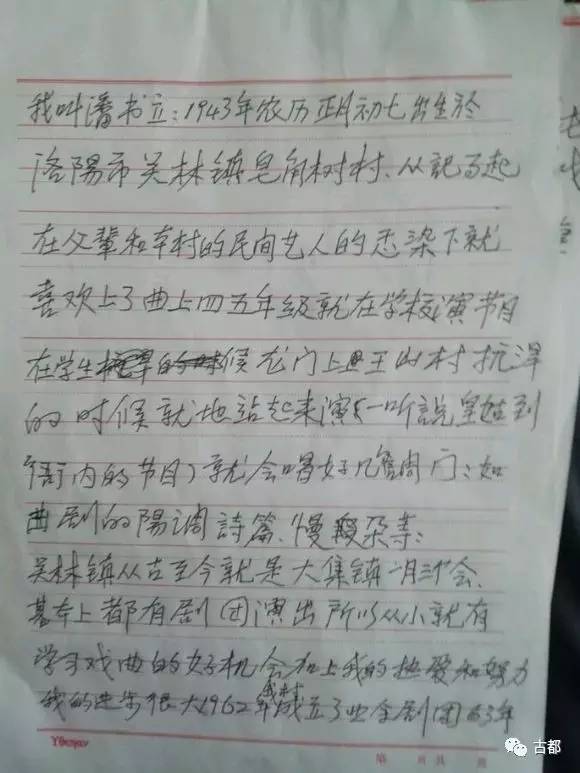 我叫潘书立:1943年农历正月初七出生於
洛阳市关林镇皂角树村、从記事起
在父辈和本村的民间艺人的 染下就
喜欢上了曲上四五年级就在学校演节目
在学生 的时候龙门上 王山村抗旱
的时候就地站起来演(一听説皇姑到
内的节目)就会唱好几 调门:如
曲剧的陽调詩篇、慢 朵等:
关林镇从古至今就是大集镇一月 会、
基本上都有剧团演出所以从小就有
学习戏曲的好机会加上我的热爱和努力
我的进步很大1962年我村成立了业余剧团63年
古都